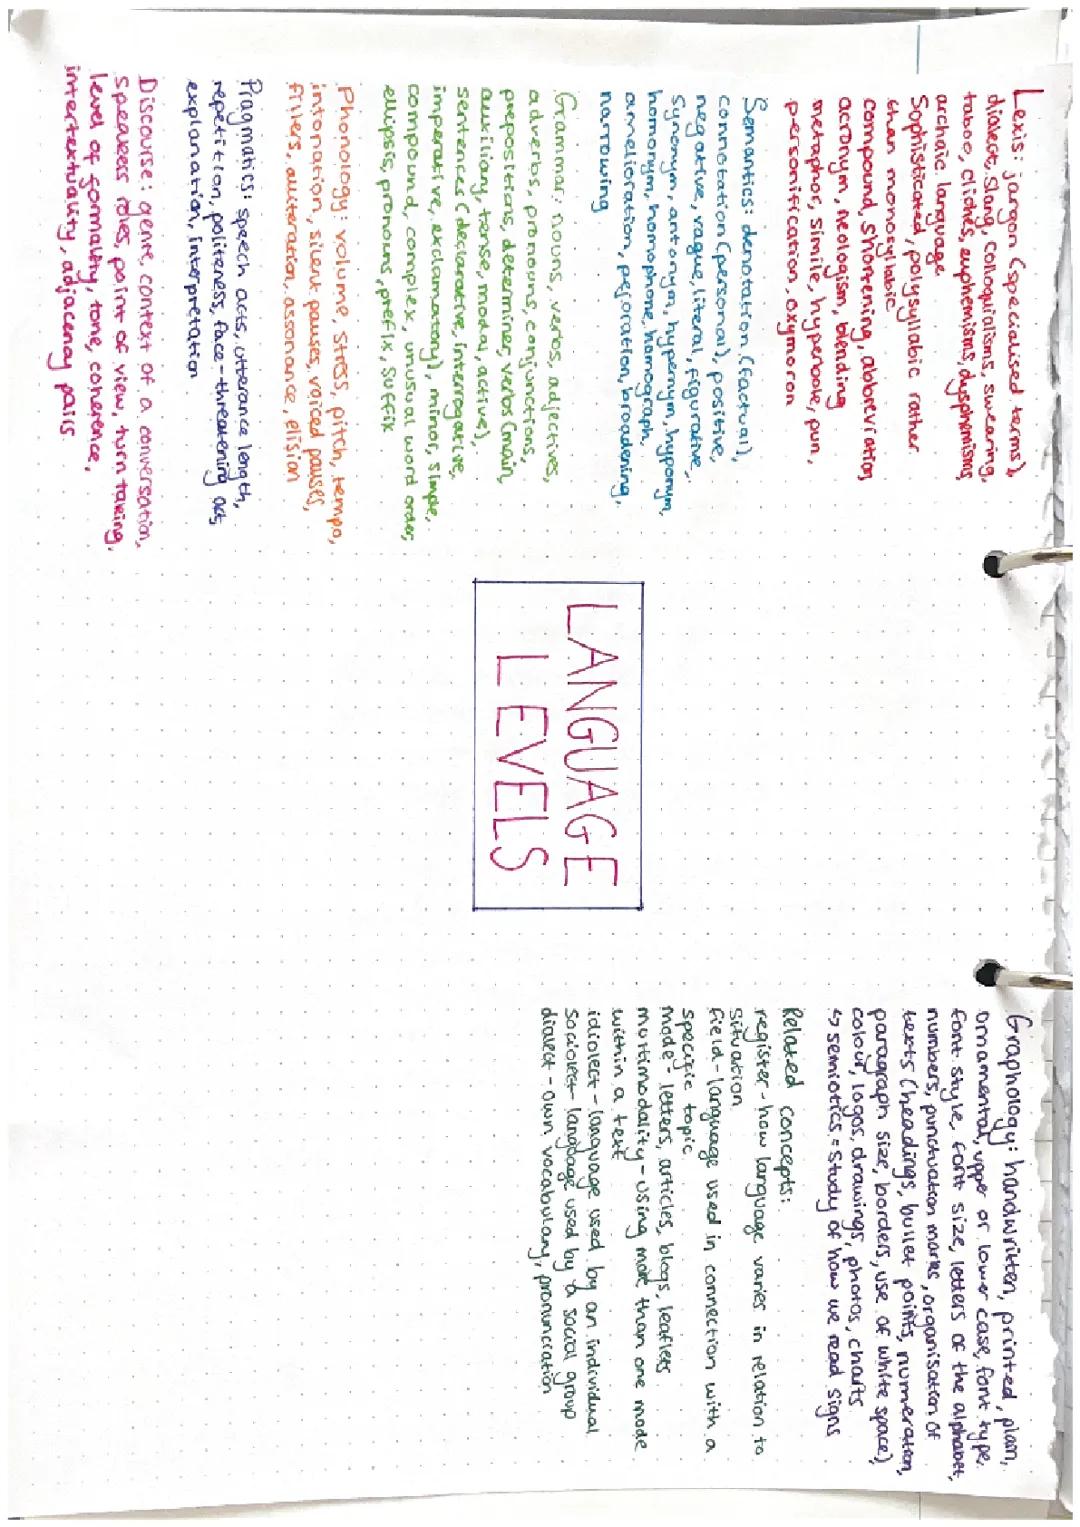 Lexis: jargon (specialised terms),
dialect, slang, colloquialisms, swearing,
taboo, clichés, euphemisms, dysphemisms,
archaic language
Sophisticated, polysyllabic rather
than monosyllabic
compound, shortening, abbreviation,
acronym, neologism, blending
metaphor, simile, hyperbole, pun,
personification, oxymoron
Semantics: denotation (factual),
connotation (personal), positive,
negative, vague, literal, figurative,
synonym, antonym, hypernym, hyponym,
homonym, homophone, homograph,
amelioration, pejoration, broadening,
narrowing
Grammar: nouns, verbs, adjectives,
adverbs, pronouns, conjunctions,
prepositions, determiner, verbs (main,
auxiliary, tense, modal, active),
sentences (declarative, interrogative,
imperative, exclamatory), minor, simple,
compound, complex, unusual word order,
ellipsis, pronouns, prefix, suffix
Phonology: volume, stress, pitch, tempo,
intonation, silent pauses, voiced pauses,
fillers, alliteration, assonance, elision
Pragmatics: speech acts, utterance length,
repetition, politeness, face-threatening acts,
explanation, interpretation
Discourse: genre, context of a conversation,
speakers roles, point of view, turn taking,
level of formality, tone, coherence,
intertextuality, adjacency pairs
LANGUAGE
LEVELS
Graphology: handwritten, printed, plain,
ornamental, upper or lower case, font type,
font style, font size, letters of the alphabet,
numbers, punctuation marks, organisation of
texts (headings, bullet points, numeration,
paragraph size, borders, use of white space)
colour, logos, drawings, photos, charts
↳ semiotics = study of how we read signs
Related concepts:
register - how language varies in relation to
situation
field - language used in connection with a
specific topic
mode - letters, articles, blogs, leaflets
multimodality - using more than one mode
within a text
idiolect - language used by an individual
Sociolect - language used by a social group
dialect - own vocabulary, pronunciation